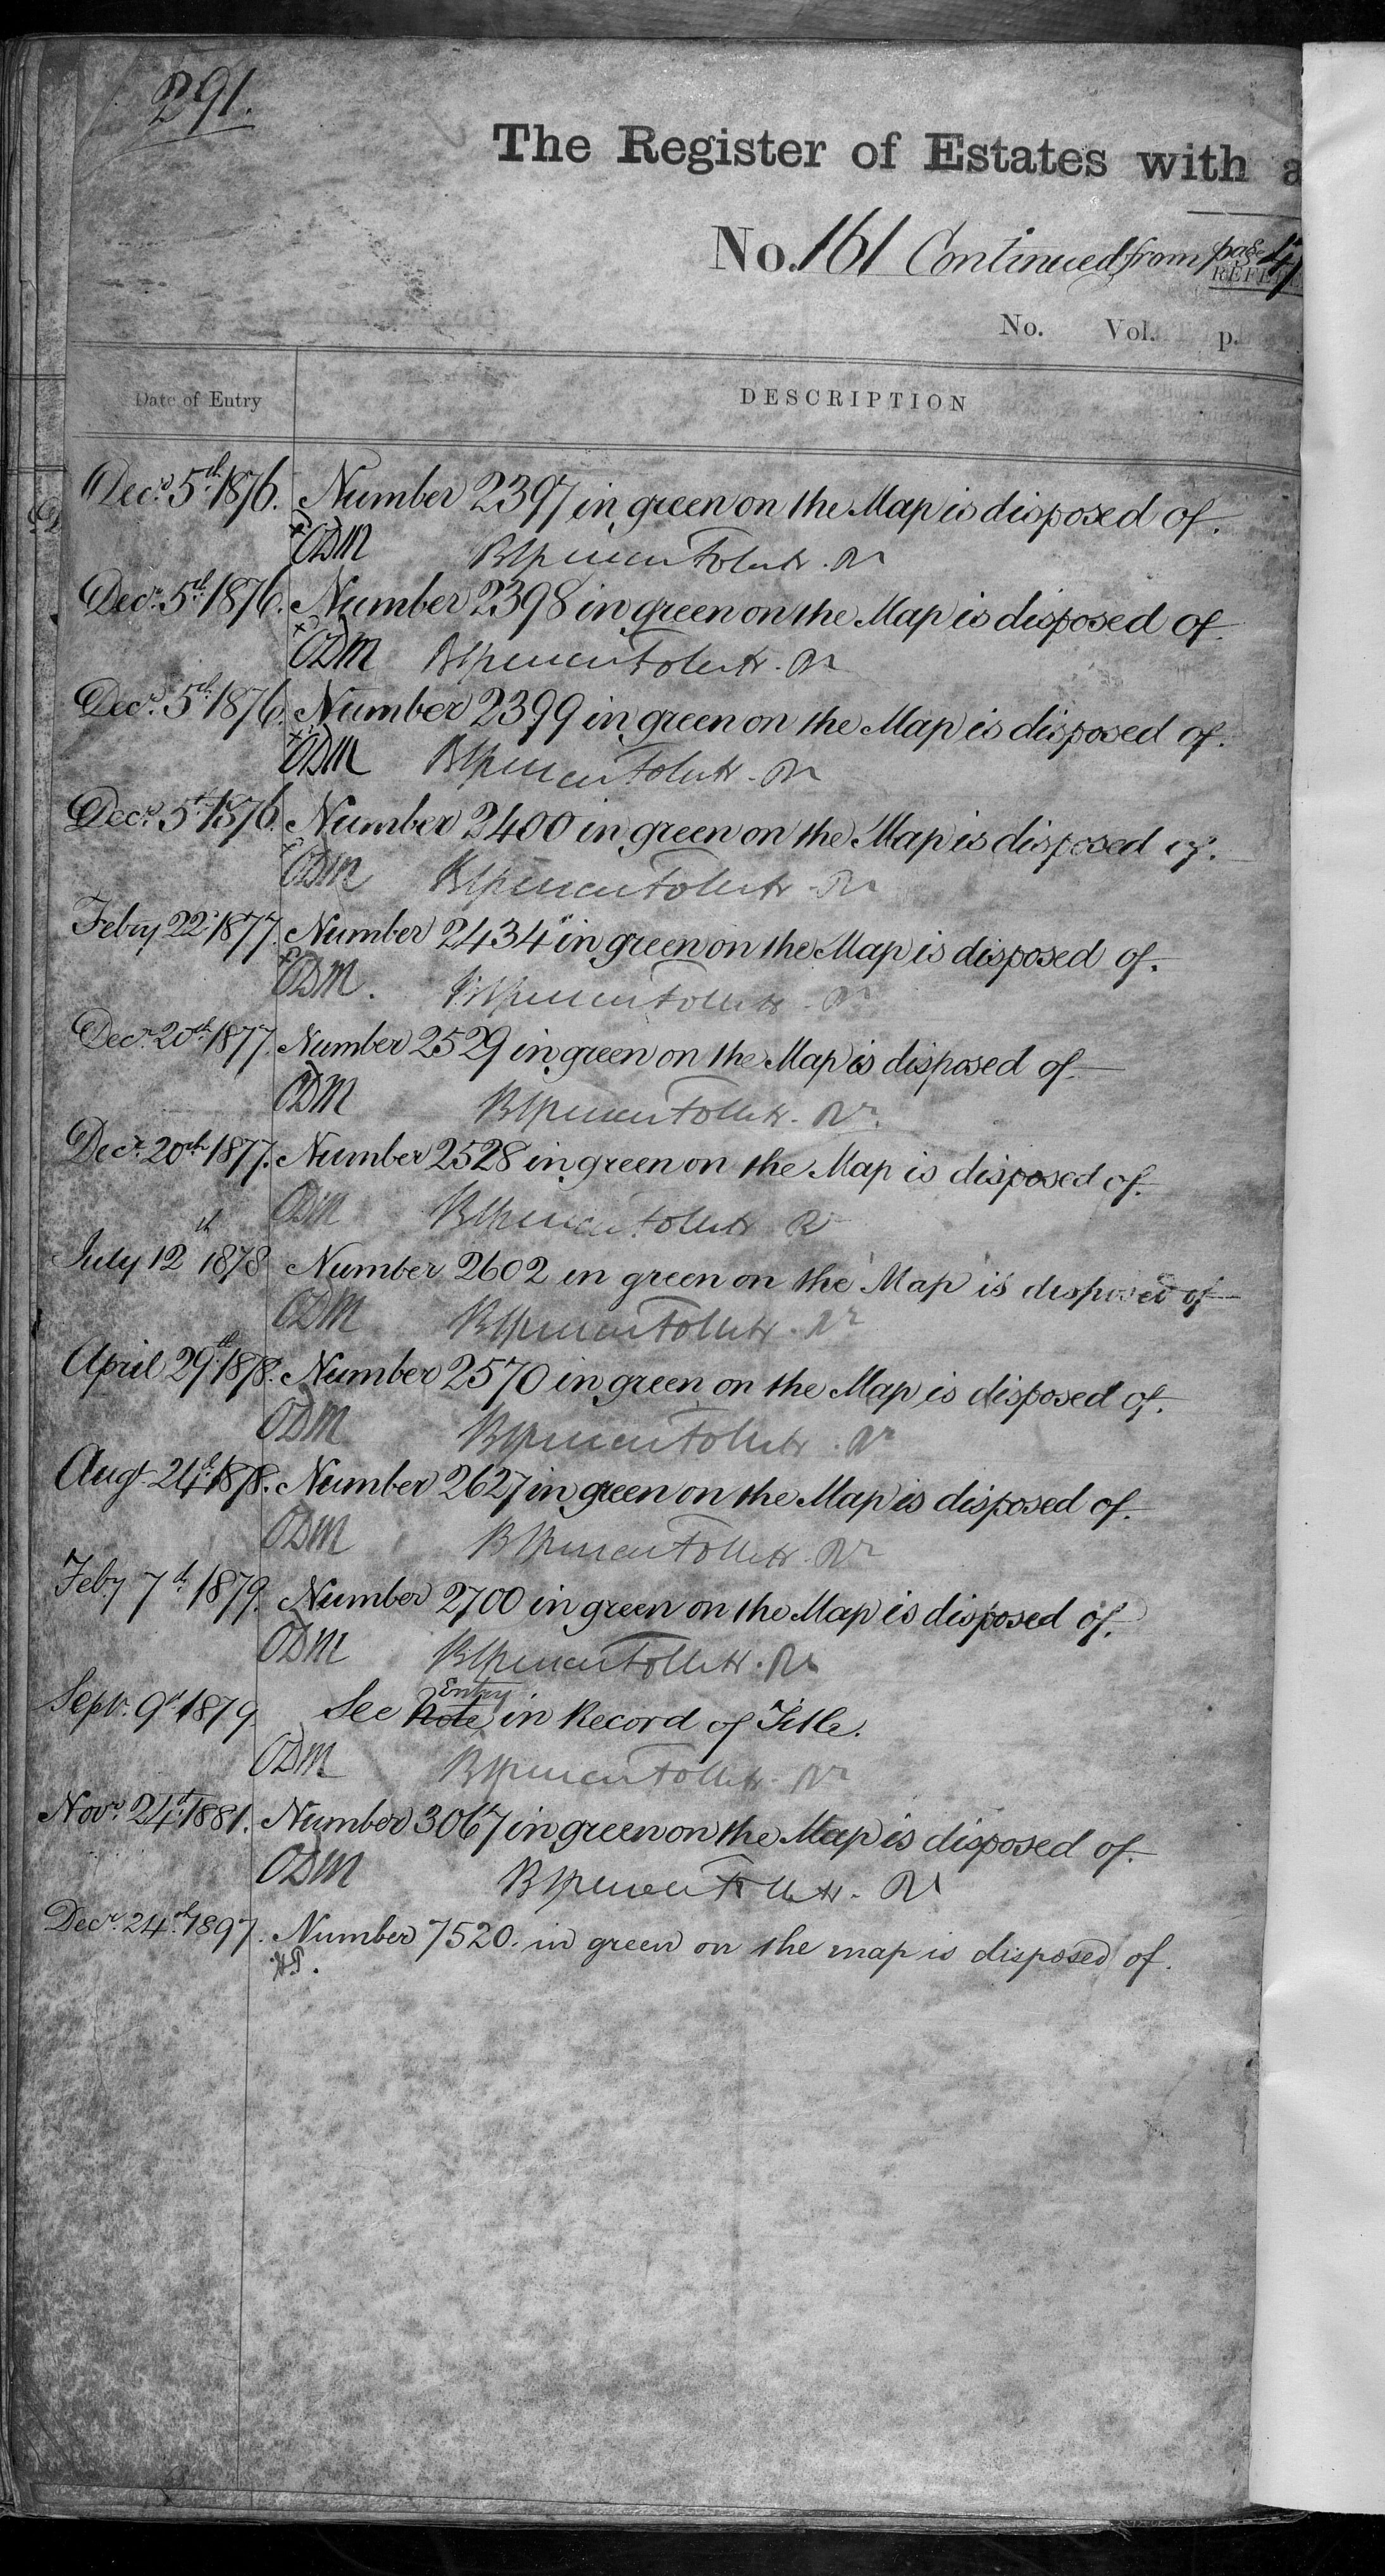 291.
The Register of Estates with a
No. 161 Continued from page 4
No. Vol. p.
Date of Entry DESCRIPTION
Decr. 5th 1876. Number 2397 in green on the Map is disposed of.
ODM
Decr. 5th 1876. Number 2398 in green on the Map is disposed of
ODM
Decr. 5th 1876. Number 2399 in green on the Map is disposed of.
ODM
Decr. 5th 1876. Number 2400 in green on the Map is disposed of.
ODM
Febry 22d 1877. Number 2434 in green on the Map is disposed of.
ODM.
Decr. 20th 1877. Number 2529 in green on the Map is disposed of
ODM
Decr. 20th 1877. Number 2528 in green on the Map is disposed of.
ODM
July 12th 1878 Number 2602 in green on the Map is disposed of
ODM
April 29th 1878. Number 2570 in green on the Map is disposed of.
ODM
Augt 24th 1878. Number 2627 in green on the Map is disposed of.
ODM
Feby 7th 1879. Number 2700 in green on the Map is disposed of.
ODM
Entry
Septr. 9th 1879 See Note in Record of Title.
ODM
Novr. 24th 1881. Number 3067 in green on the Map is disposed of.
ODM
Decr. 24th 1897. Number 7520. in green on the map is disposed of.